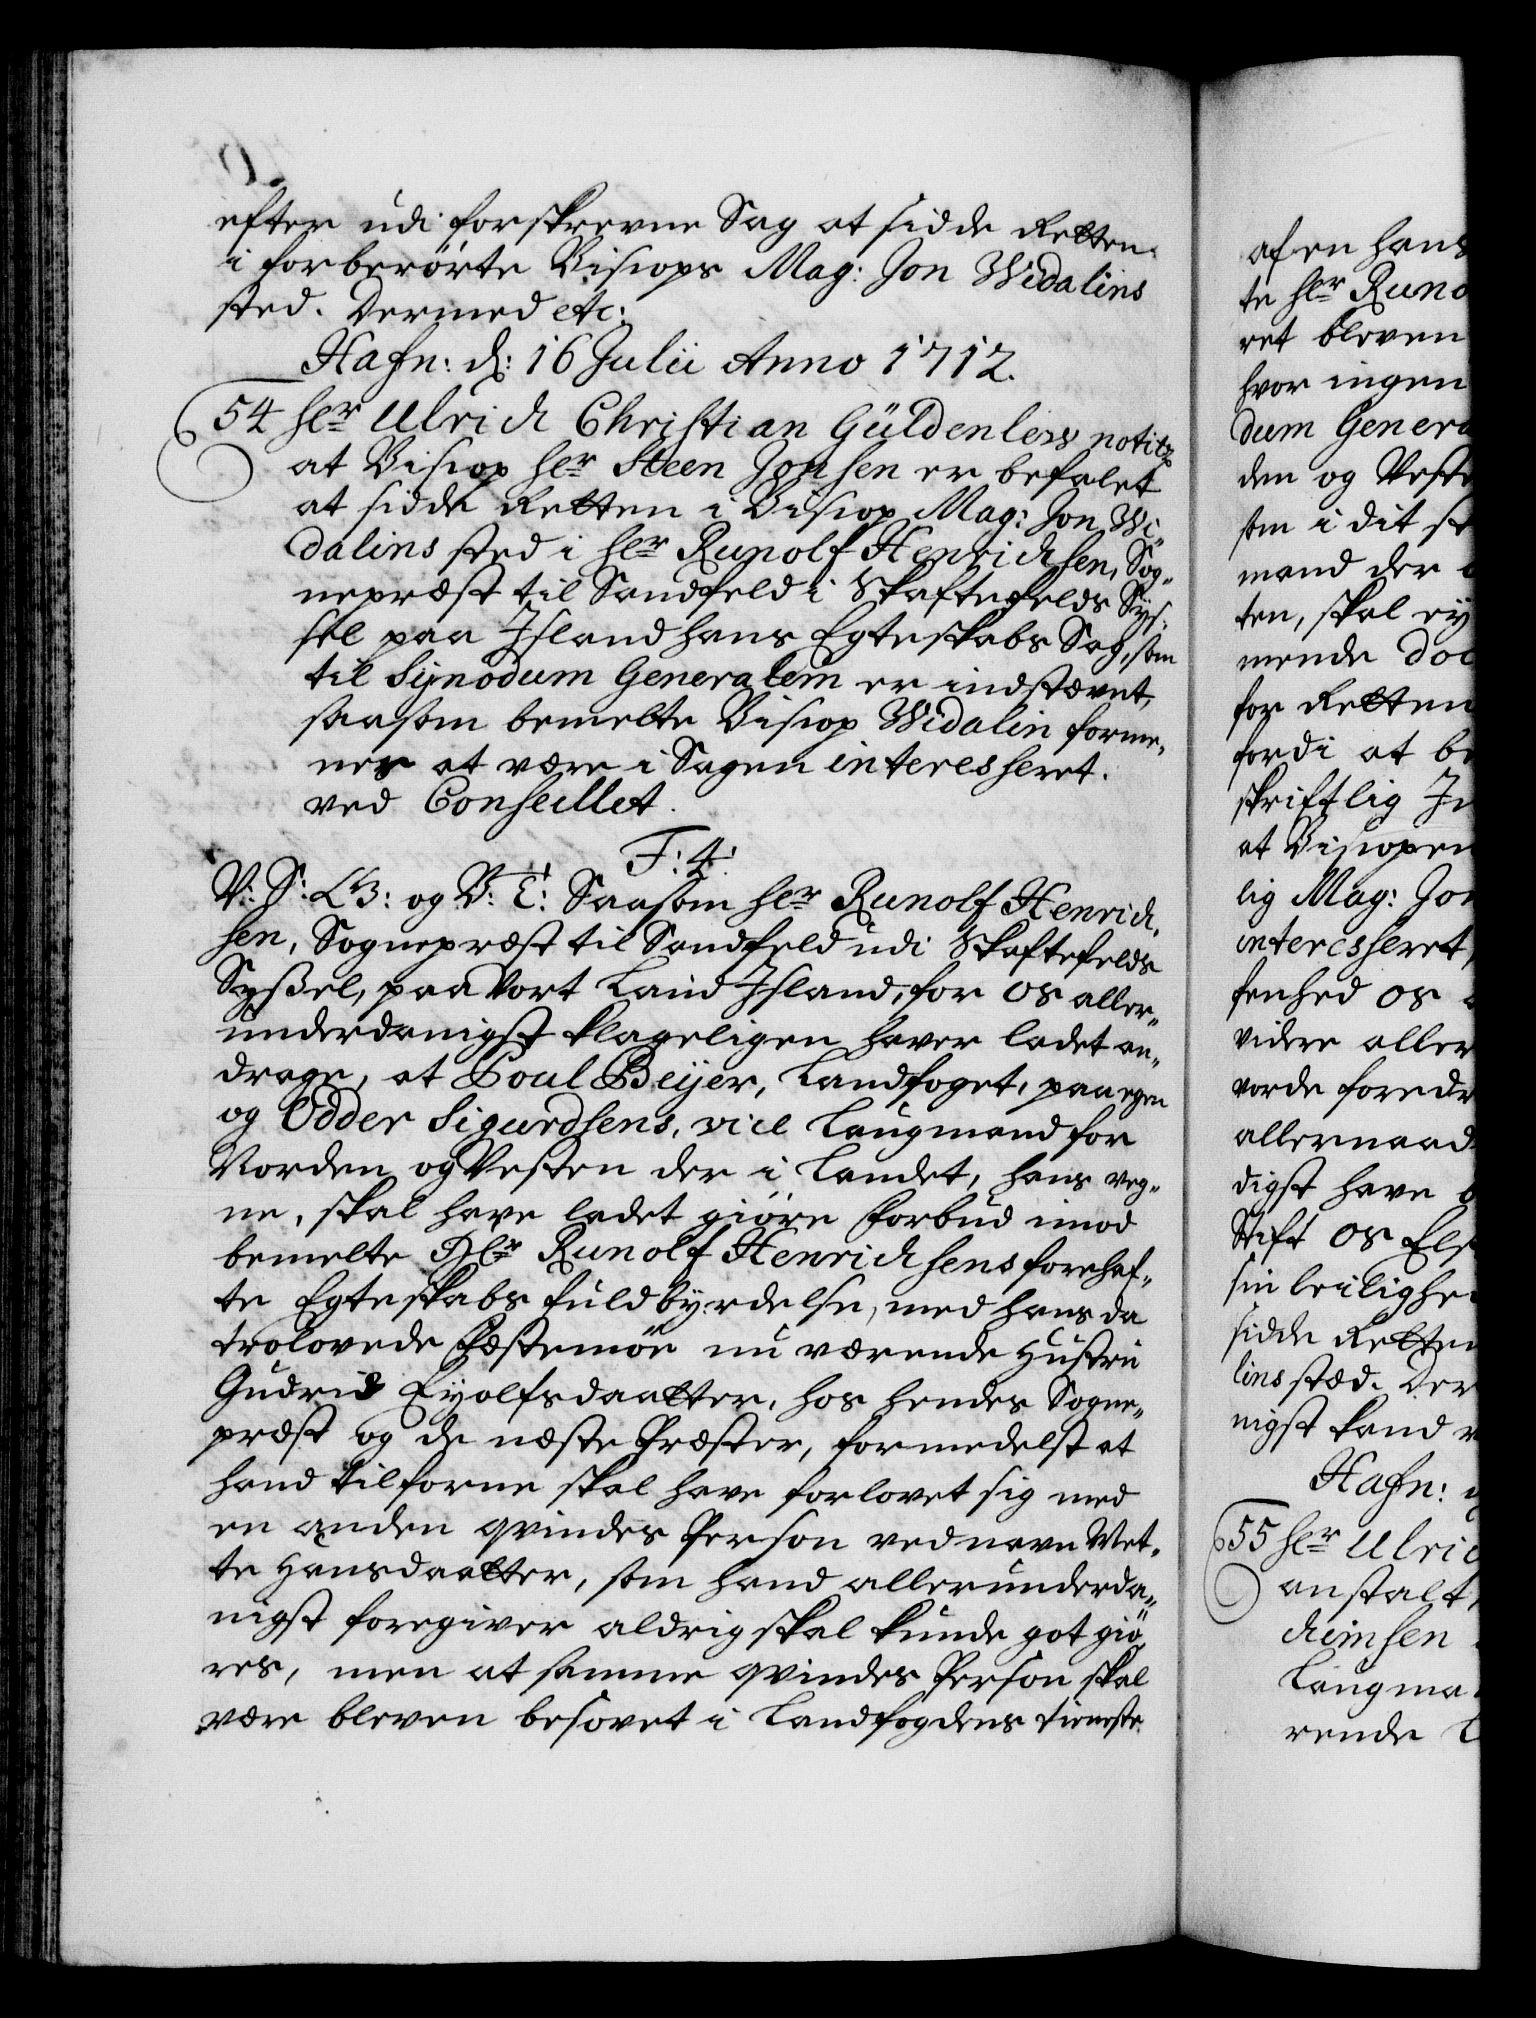 efter udi forskrevne Sag at sidde Retten
i forberörte Bisiops Mag: Jon Widalins
sted. Dermed etc:
Hafn: d: 16 Julii Anno 1712.
54 hr Ulrich Christian Güldenlews notitz
at Bisiop hr Steen Jonsen er befalet
at sidde Retten i Bisiop Mag: Jon Wi„
dalins sted i hr Runolf Henrichsen, Sog„
nepræst til Sandfeld i Skaftefelds Sys„
sel paa Jsland hans Egteskabs Sag, som
til Sijnodum Generalem er indstævnt,
saasom bemelte Bisiop Widalin forme„
nes at være i Sagen interesseret.
ved Conseillet.
F: 4:
V: G: og B: T: Saasom hr Runolf Henrich„
sen, Sognepræst til Sandfeld udi Skaftefelds
Syßel, paa Vort Land Jsland, for os aller„
underdanigst klageligen haver ladet an„
drage, at Poul Beijer, Landfoget, paa egen
og Odder Sigurdsens, vice Laugmand for
Norden og Vesten der i Landet, hans veg„
ne, skal have ladet giöre forbud imod
bemelte Hr Runolf Henrichsens forehaf„
te Egteskabs fuldbyrdelse, med hans da
trolovede Fæstemöe nu værende Hustru
Gudrid Eyolfsdaatter, hos hendes Sogne„
præst og de næste Præster, formedelst at
hand tilforne skal have forlovet sig med
en anden qvindes Person ved navn Met„
te Hansdaatter, som hand allerunderda„
nigst foregiver aldrig skal kunde got giö„
res, men at samme qvindes Person skal
være bleven besovet i Landfogdens tieneste
af en hans
te hr Runo
ret bleven
hvor ingen
dum Genera
den og Veste
som i dit st
mand der
ten, skal ey
mende doc
for Retten
fordi at be
skriftlig In
at Bisiopen
lig Mag: Jon
interesseret,
fenhed os
videre aller
vorde foredr
allernaad
digst have
Stift os Els
sin leilighe
sidde Retten
lins stæd. Der
nigst kand
Hafn:
55 hr Ulric
anstalt,
chimsen
Laugma
rende L